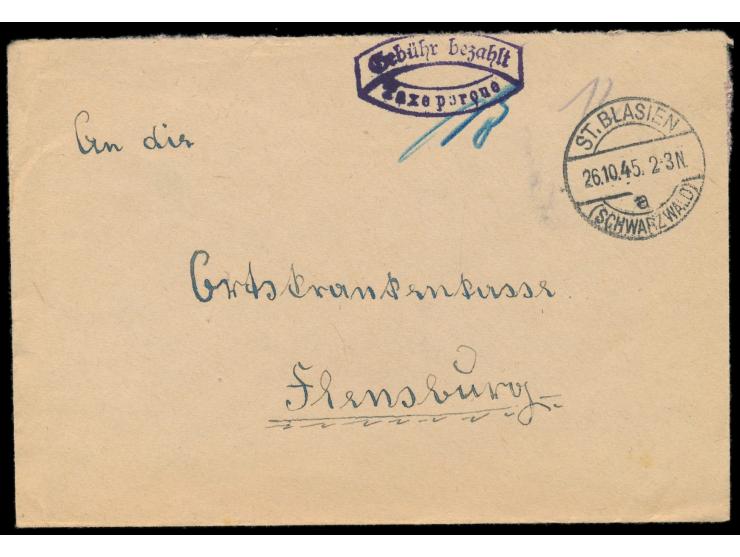 Gebühr bezahlt
Taxe perçue
12
ST. BLASIEN
26.10.45. 2-3 N.
a
(SCHWARZWALD)
An die
Ortskrankenkasse
Flensburg